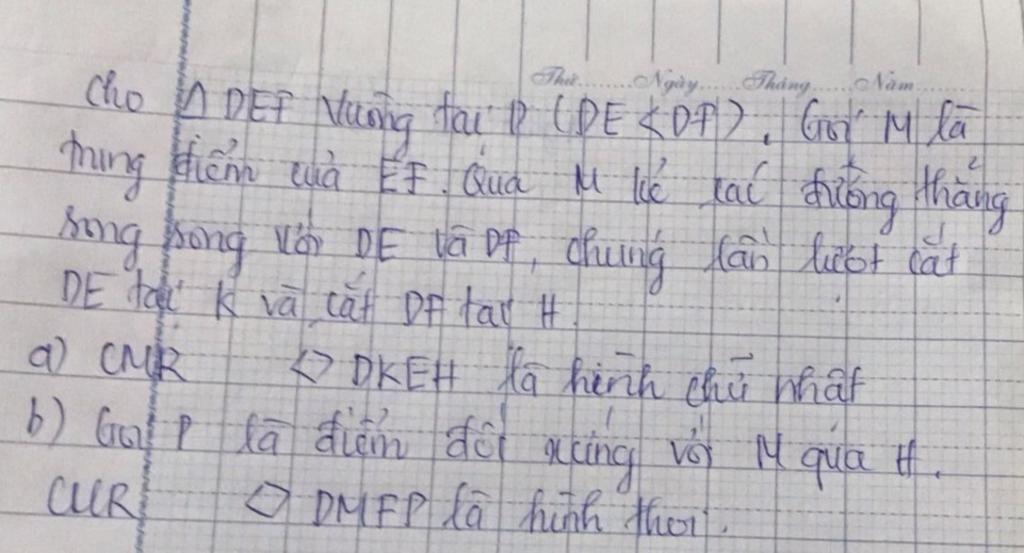 Thứ......Ngày......Tháng......Năm......
Cho Δ DEF vuông tại D (DE < DF). Gọi M là
trung điểm của EF. Qua M kẻ các đường thẳng
song song với DE và DF, chúng lần lượt cắt
DE tại K và cắt DF tại H.
a) CMR ◇ DKEH là hình chữ nhật
b) Gọi P là điểm đối xứng với M qua H.
CMR ◇ DMFP là hình thoi.